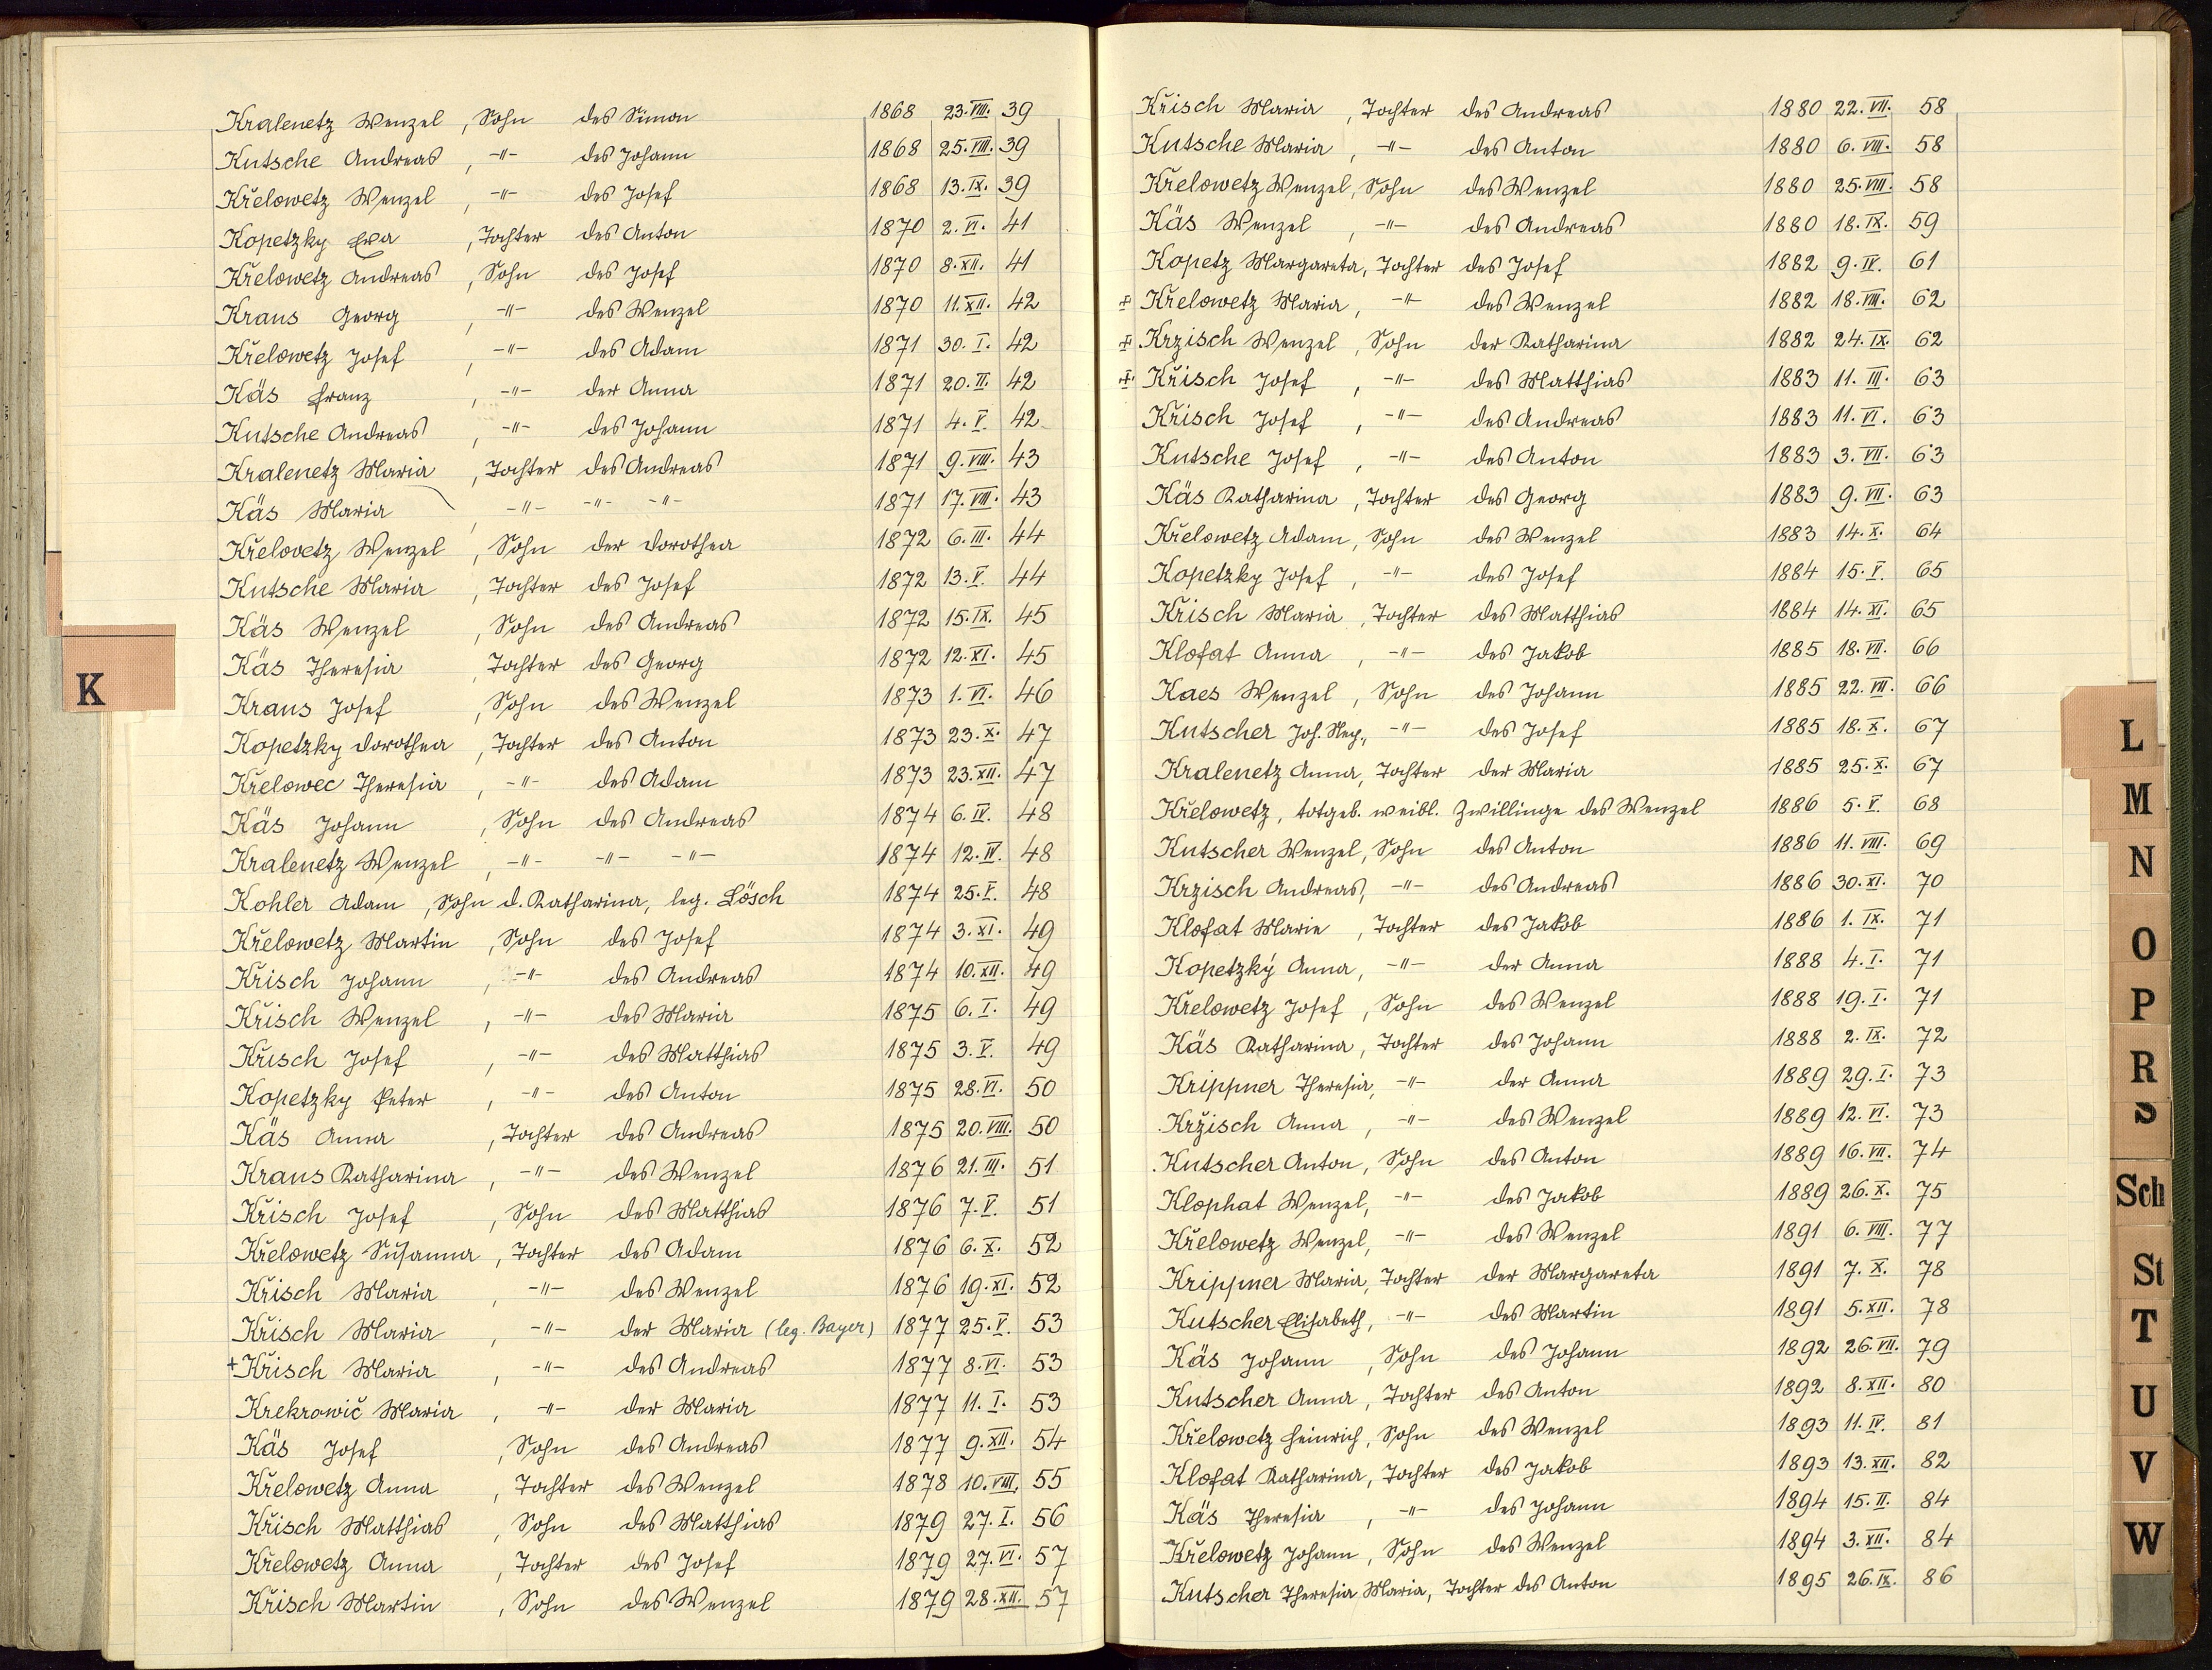 Kralenetz Wenzel, Sohn des Simon 1868 23.VIII. 39
Kutsche Andreas, -"- des Johann 1868 25.VIII. 39
Křelowetz Wenzel, -"- des Josef 1868 13.IX. 39
Kopetzky Eva, Tochter des Anton 1870 2.VI. 41
Křelowetz Andreas, Sohn des Josef 1870 8.XII. 41
Kraus Georg, -"- des Wenzel 1870 11.XII. 42
Křelowetz Josef, -"- des Adam 1871 30.I. 42
Käs Franz, -"- der Anna 1871 20.II. 42
Kutsche Andreas, -"- des Johann 1871 4.V. 42
Kralenetz Maria, Tochter des Andreas 1871 9.VIII. 43
Käs Maria, -"- -"- -"- 1871 17.VIII. 43
Křelovetz Wenzel, Sohn der Dorothea 1872 6.III. 44
Kutsche Maria, Tochter des Josef 1872 13.V. 44
Käs Wenzel, Sohn des Andreas 1872 15.IX. 45
Käs Theresia, Tochter des Georg 1872 12.XI. 45
Kraus Josef, Sohn des Wenzel 1873 1.VI. 46
Kopetzky Dorothea, Tochter des Anton 1873 23.X. 47
Křelowec Theresia, -"- des Adam 1873 23.XII. 47
Käs Johann, Sohn des Andreas 1874 6.IV. 48
Kralenetz Wenzel, -"- -"- -"- 1874 12.IV. 48
Kohler Adam, Sohn d. Katharina, leg. Lösch 1874 25.V. 48
Křelowetz Martin, Sohn des Josef 1874 3.XI. 49
Křisch Johann, -"- des Andreas 1874 10.XII. 49
Křisch Wenzel, -"- des Maria 1875 6.I. 49
Křisch Josef, -"- des Matthias 1875 3.V. 49
Kopetzky Peter, -"- des Anton 1875 28.VI. 50
Käs Anna, Tochter des Andreas 1875 20.VIII. 50
Kraus Katharina, -"- des Wenzel 1876 21.III. 51
Křisch Josef, Sohn des Matthias 1876 7.V. 51
Křelowetz Susanna, Tochter des Adam 1876 6.X. 52
Křisch Maria, -"- des Wenzel 1876 19.XI. 52
Křisch Maria, -"- der Maria (leg. Bayer) 1877 25.V. 53
+ Křisch Maria, -"- des Andreas 1877 8.VI. 53
Krekrowič Maria, -"- der Maria 1877 11.I. 53
Käs Josef, Sohn des Andreas 1877 9.XII. 54
Křelowetz Anna, Tochter des Wenzel 1878 10.VIII. 55
Křisch Matthias, Sohn des Matthias 1879 27.I. 56
Křelowetz Anna, Tochter des Josef 1879 27.VI. 57
Křisch Martin, Sohn des Wenzel 1879 28.XII. 57
K
Křisch Maria, Tochter des Andreas 1880 22.VII. 58
Kutsche Maria, -"- des Anton 1880 6.VIII. 58
Křelowetz Wenzel, Sohn des Wenzel 1880 25.VIII. 58
Käs Wenzel, -"- des Andreas 1880 18.IX. 59
Kopetz Margareta, Tochter des Josef 1882 9.IV. 61
± Křelowetz Maria, -"- des Wenzel 1882 18.VIII. 62
± Krzisch Wenzel, Sohn der Katharina 1882 24.IX. 62
± Křisch Josef, -"- des Matthias 1883 11.III. 63
Křisch Josef, -"- des Andreas 1883 11.VI. 63
Kutsche Josef, -"- des Anton 1883 3.VII. 63
Käs Katharina, Tochter des Georg 1883 9.VII. 63
Křelowetz Adam, Sohn des Wenzel 1883 14.X. 64
Kopetzky Josef, -"- des Josef 1884 15.V. 65
Křisch Maria, Tochter des Matthias 1884 14.XI. 65
Klofat Anna, -"- des Jakob 1885 18.VII. 66
Kaes Wenzel, Sohn des Johann 1885 22.VII. 66
Kutscher Joh. Nep., -"- des Josef 1885 18.X. 67
Kralenetz Anna, Tochter der Maria 1885 25.X. 67
Křelowetz, totgeb. weibl. Zwillinge des Wenzel 1886 5.V. 68
Kutscher Wenzel, Sohn des Anton 1886 11.VIII. 69
Krzisch Andreas, -"- des Andreas 1886 30.XI. 70
Klofat Marie, Tochter des Jakob 1886 1.IX. 71
Kopetzký Anna, -"- der Anna 1888 4.I. 71
Křelowetz Josef, Sohn des Wenzel 1888 19.I. 71
Käs Katharina, Tochter des Johann 1888 2.IX. 72
Krippner Theresia, -"- der Anna 1889 29.I. 73
Kržisch Anna, -"- des Wenzel 1889 12.VI. 73
Kutscher Anton, Sohn des Anton 1889 16.VII. 74
Klophat Wenzel, -"- des Jakob 1889 26.X. 75
Křelowetz Wenzel, -"- des Wenzel 1891 6.VIII. 77
Krippner Maria, Tochter der Margareta 1891 7.X. 78
Kutscher Elisabeth, -"- des Martin 1891 5.XII. 78
Käs Johann, Sohn des Johann 1892 26.VII. 79
Kutscher Anna, Tochter des Anton 1892 8.XII. 80
Křelowetz Heinrich, Sohn des Wenzel 1893 11.IV. 81
Klofat Katharina, Tochter des Jakob 1893 13.XII. 82
Käs Theresia, -"- des Johann 1894 15.II. 84
Křelowetz Johann, Sohn des Wenzel 1894 3.XII. 84
Kutscher Theresia Maria, Tochter des Anton 1895 26.IX. 86
L
M
N
O
P
R
S
Sch
St
T
U
V
W